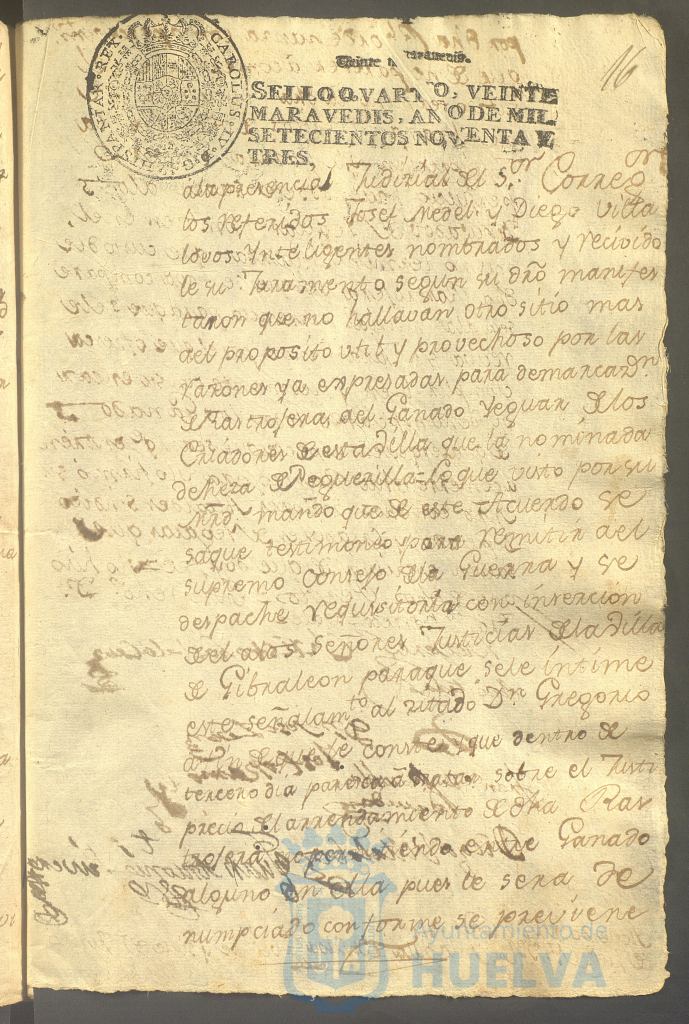 16
CAROLUS IV D G HISPANIAR REX
SELLO QVARTO, VEINTE
MARAVEDIS, AÑO DE MIL
SETECIENTOS NOVENTA Y
TRES,
a la presencia Judicial el S.or Correg.or
los referidos Josef Medel y Diego Villa
lovos Ynteligentes nombrados y recivido
le su Juramento segun su dro manifes
taron que no hallavan otro sitio mas
del proposito util y provechoso por las
rasones ya expresadas para demarcar
Rastrojera del Ganado Yeguar de los
Criadores de esta villa que la nominada
deheza de Peguerilla = Lo que visto por su
Mrd. mando que de este Acuerdo se
saque testimonio para remitir al
supremo Consejo de la Guerra y se
despache requisitoria con insercion
del a los Señores Justicias de la villa
de Gibraleon para que se le intime
este señalam.to al citado Dn Gregorio
a fin de que le conste y que dentro de
tercero dia paresca a tratar sobre el Justi
precio el arrendamiento de dha Ras
trojera Ganado
alguno en ella pues le sera de
numpciado conforme se previene
Ayuntamiento de
HUELVA